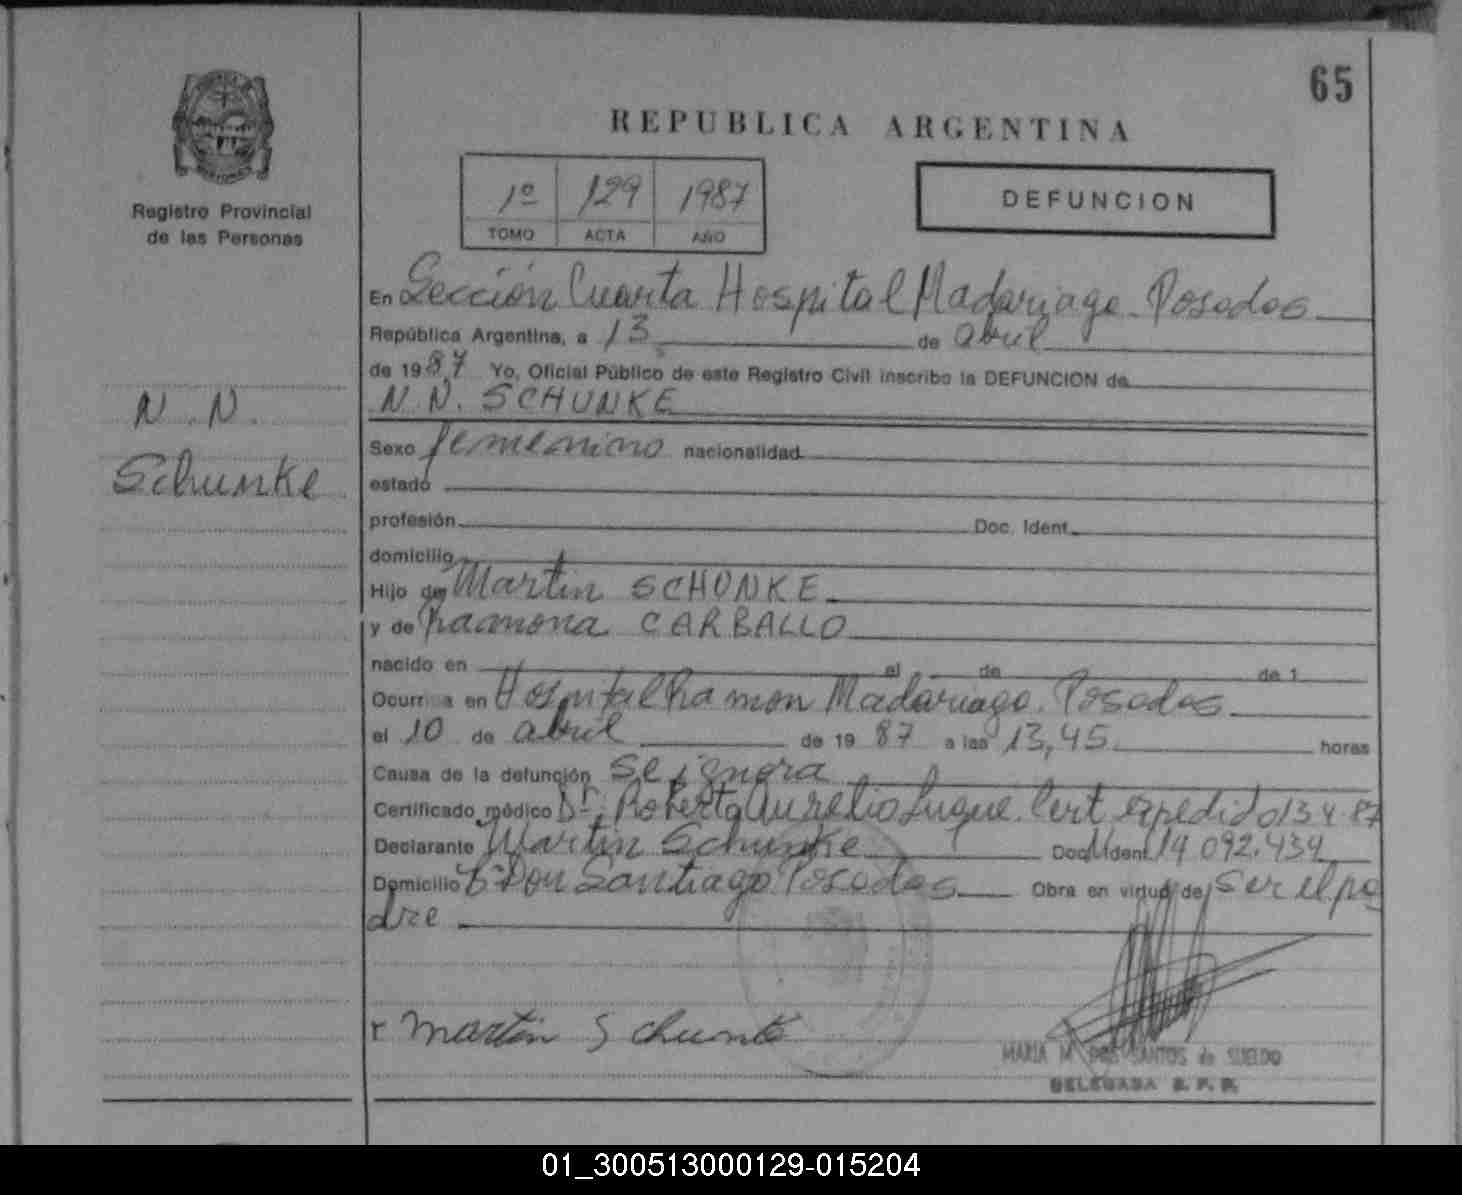 65
REPUBLICA ARGENTINA
Registro Provincial
de las Personas
1º 129 1987
TOMO ACTA AÑO
DEFUNCION
N. N.
Schunke
En Sección Cuarta Hospital Madariaga. Posadas
República Argentina, a 13 de abril
de 1987 Yo, Oficial Público de este Registro Civil inscribo la DEFUNCION de
N. N. SCHUNKE
Sexo femenino nacionalidad
estado
profesión Doc. Ident.
domicilio
Hijo de Martin SCHUNKE
y de Ramona CARBALLO
nacido en el de de 1
Ocurrida en Hospital Ramon Madariaga. Posadas
el 10 de abril de 1987 a las 13,45 horas
Causa de la defunción se ignora
Certificado médico Dr. Roberto Aurelio Luque. Cert. expedido 13.4.87
Declarante Martin Schunke Doc. Ident. 14.092.434
Domicilio Bº Don Santiago Posadas Obra en virtud de ser el pa
dre
Martin Schunke
MARIA M. DOS SANTOS de SUELDO
DELEGADA R. P. P.
01_300513000129-015204